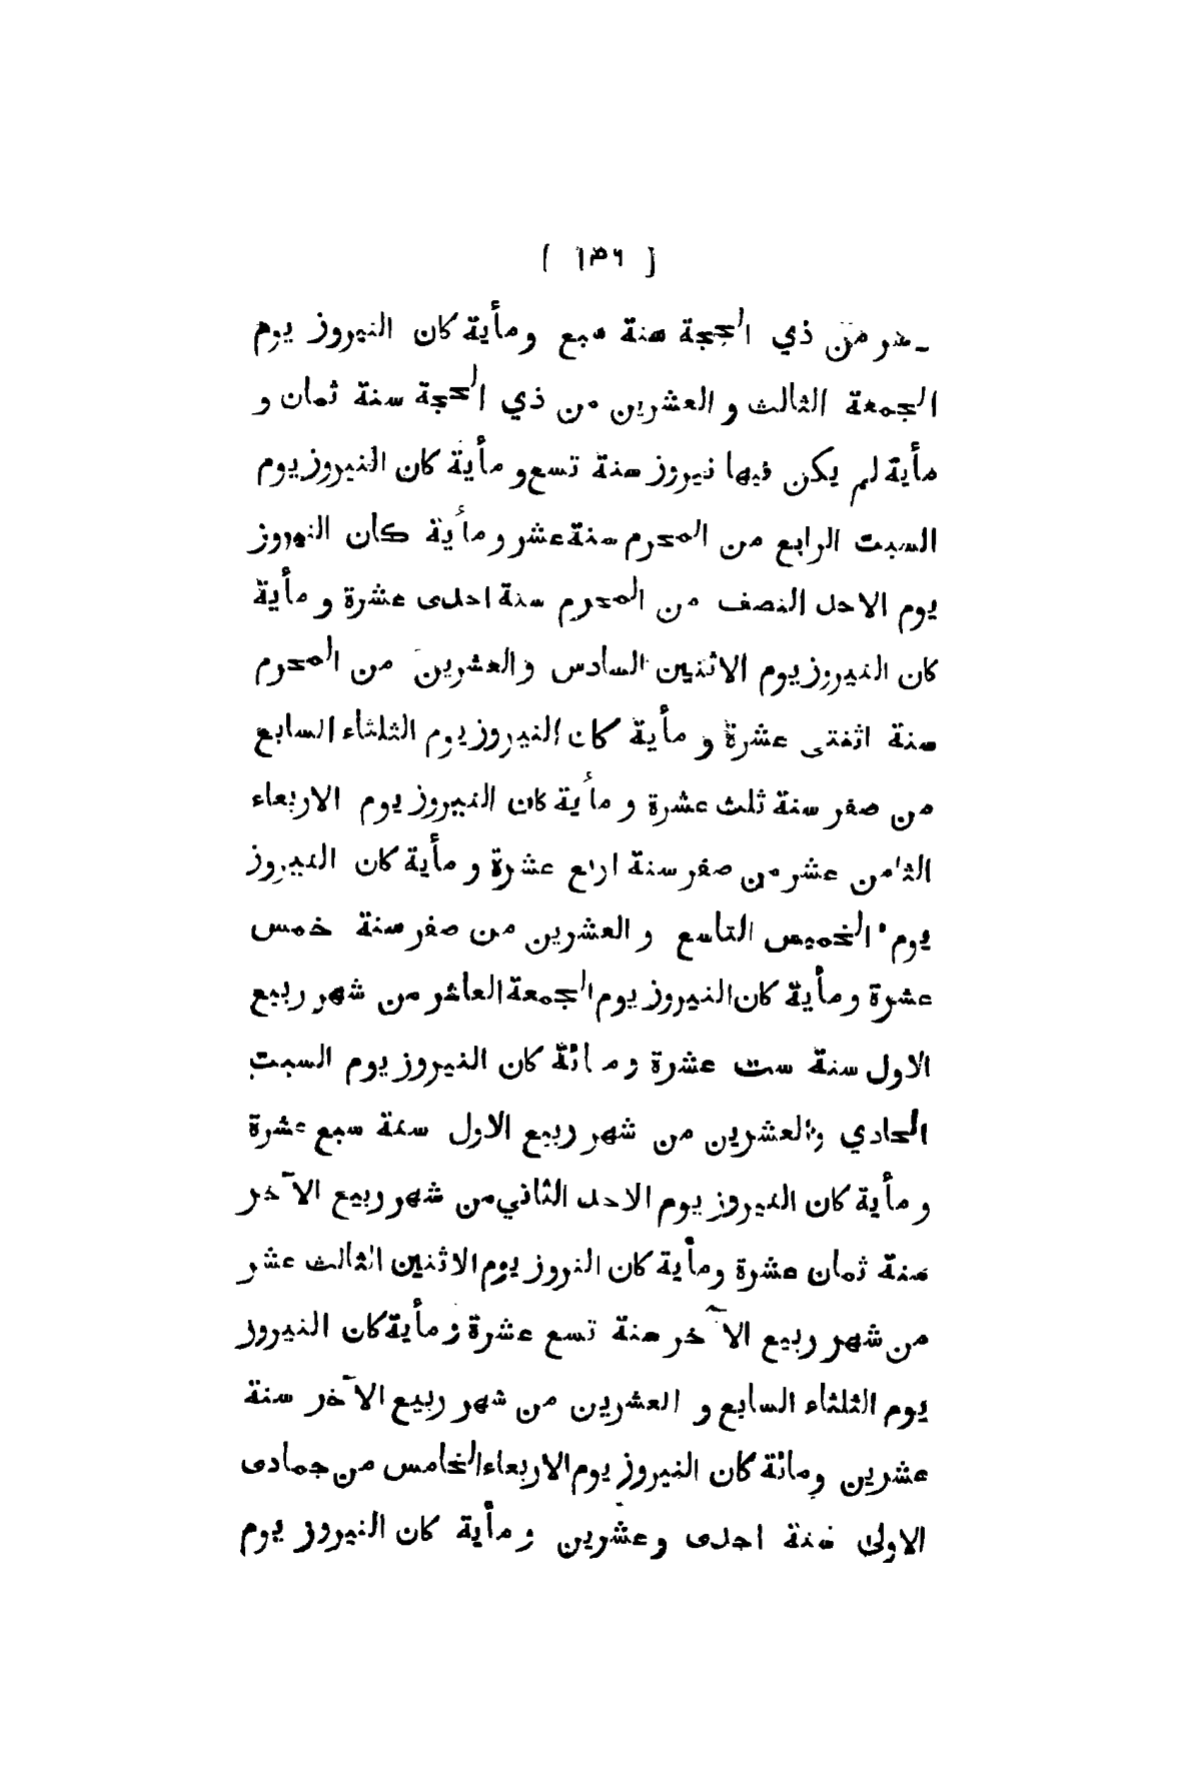 [ ١٣٦ ]
من ذي الحجة سنة سبع ومأية كان النيروز يوم
الجمعة الثالث و العشرين من ذي الحجة سنة ثمان و
مأية لم يكن فيها نيروز سنة تسع و مأية كان النيروز يوم
السبت الرابع من المحرم سنة عشر و مأية كان النيروز
يوم الاحد النصف من المحرم سنة احدى عشرة و مأية
كان النيروز يوم الاثنين السادس والعشرين من المحرم
سنة اثنتى عشرة و مأية كان النيروز يوم الثلثاء السابع
من صفر سنة ثلث عشرة و مأية كان النيروز يوم الاربعاء
الثامن عشر من صفر سنة اربع عشرة و مأية كان النيروز
يوم الخميس التاسع و العشرين من صفر سنة خمس
عشرة و مأية كان النيروز يوم الجمعة العاشر من شهر ربيع
الاول سنة ست عشرة و مائة كان النيروز يوم السبت
الحادي والعشرين من شهر ربيع الاول سنة سبع عشرة
و مأية كان النيروز يوم الاحد الثاني من شهر ربيع الآخر
سنة ثمان عشرة ومأية كان النروز يوم الاثنين الثالث عشر
من شهر ربيع الآخر سنة تسع عشرة و مأية كان النيروز
يوم الثلثاء السابع و العشرين من شهر ربيع الآخر سنة
عشرين ومائة كان النيروز يوم الاربعاء الخامس من جمادى
الاولى سنة احدى وعشرين و مأية كان النيروز يوم